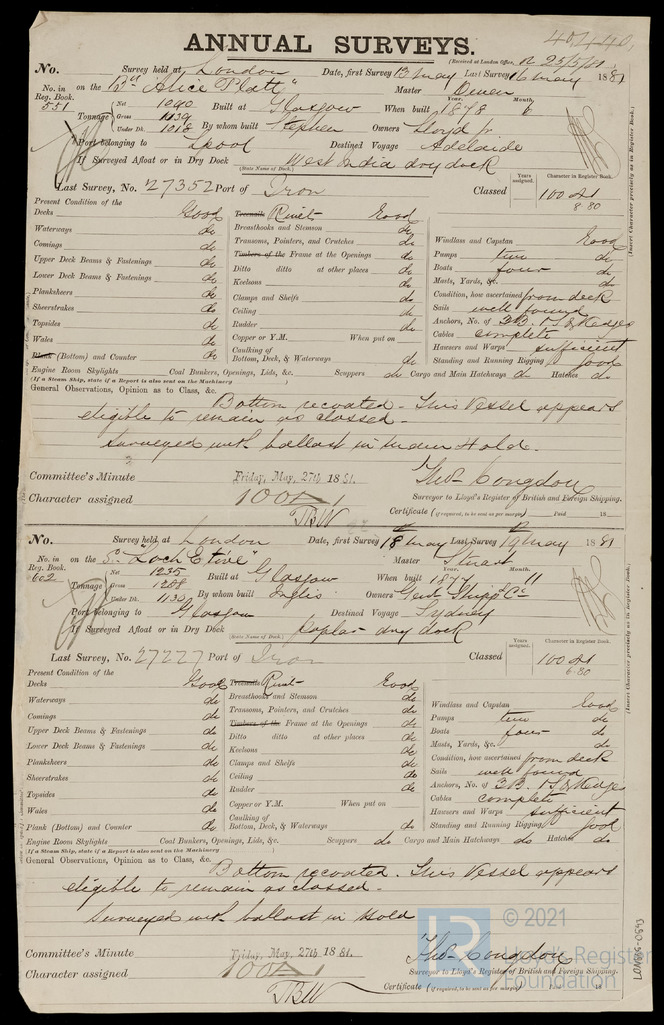 40440
ANNUAL SURVEYS.
(Received at London Office, 25/5/81
No. Survey held at London Date, first Survey 13 May Last Survey 16 May 1881
No. in Reg. Book. on the Bq "Alice Platt" Master
551 Tonnage Net 1090 Built at Glasgow When built Year. 1878 Month. 6
Gross 1139
Under Dk. 1018 By whom built Stephen Owners Lloyd jr.
Port belonging to Lpool Destined Voyage Adelaide
If Surveyed Afloat or in Dry Dock West India dry dock
(State Name of Dock.)
Last Survey, No. 27352 Port of Iron Classed Years assigned. Character in Register Book. 100 A1
8.80
(Insert Character precisely as in Register Book.)
Present Condition of the
Decks Good Treenails Rivets Good
Waterways do Breasthooks and Stemson do
Comings do Transoms, Pointers, and Crutches do Windlass and Capstan Good
Upper Deck Beams & Fastenings do Timbers of the Frame at the Openings do Pumps two do
Lower Deck Beams & Fastenings do Ditto ditto at other places do Boats four do
Plankshears do Keelsons do Masts, Yards, &c. do
Sheerstrakes do Clamps and Shelfs do Condition, how ascertained from deck
Topsides do Ceiling do Sails well found
Wales do Rudder do Anchors, No. of 3B. 1S. & Kedges
Plank (Bottom) and Counter do Copper or Y.M. When put on Cables complete
Caulking of Bottom, Deck, & Waterways do Hawsers and Warps sufficient
Standing and Running Rigging good
Engine Room Skylights Coal Bunkers, Openings, Lids, &c. Scuppers do Cargo and Main Hatchways do Hatches do
(If a Steam Ship, state if a Report is also sent on the Machinery )
General Observations, Opinion as to Class, &c.
Bottom recoated. This Vessel appears
eligible to remain as classed.
Surveyed with ballast in Main Hold.
Committee's Minute Friday, May, 27th 1881. Thos. Congdon
Character assigned 100 A1 Surveyor to Lloyd's Register of British and Foreign Shipping.
TBW Certificate (if required, to be sent as per margin) Paid 18
No. Survey held at London Date, first Survey 18 May Last Survey 19 May 1881
No. in Reg. Book. on the S. "Loch Etive" Master Stuart
602 Tonnage Net 1235 Built at Glasgow When built Year. 1877 Month. 11
Gross 1288
Under Dk. 1133 By whom built Inglis Owners Genl. Shippg. Co.
Port belonging to Glasgow Destined Voyage Sydney
If Surveyed Afloat or in Dry Dock Poplar dry dock
(State Name of Dock.)
Last Survey, No. 27227 Port of Iron Classed Years assigned. Character in Register Book. 100 A1
6.80
(Insert Character precisely as in Register Book.)
Present Condition of the
Decks Good Treenails Rivets Good
Waterways do Breasthooks and Stemson do
Comings do Transoms, Pointers, and Crutches do Windlass and Capstan Good
Upper Deck Beams & Fastenings do Timbers of the Frame at the Openings do Pumps two do
Lower Deck Beams & Fastenings do Ditto ditto at other places do Boats four do
Plankshears do Keelsons do Masts, Yards, &c. do
Sheerstrakes do Clamps and Shelfs do Condition, how ascertained from deck
Topsides do Ceiling do Sails well found
Wales do Rudder do Anchors, No. of 3B. 1S. & Kedges
Plank (Bottom) and Counter do Copper or Y.M. When put on Cables complete
Caulking of Bottom, Deck, & Waterways do Hawsers and Warps sufficient
Standing and Running Rigging good
Engine Room Skylights Coal Bunkers, Openings, Lids, &c. Scuppers do Cargo and Main Hatchways do Hatches do
(If a Steam Ship, state if a Report is also sent on the Machinery )
General Observations, Opinion as to Class, &c.
Bottom recoated. This Vessel appears
eligible to remain as classed.
Surveyed with ballast in Hold
Committee's Minute Friday, May, 27th 1881. Thos. Congdon
Character assigned 100 A1 Surveyor to Lloyd's Register of British and Foreign Shipping.
TBW Certificate (if required, to be sent as per margin) 18
LR © 2021
Lloyd's Register
Foundation
LON865-0893